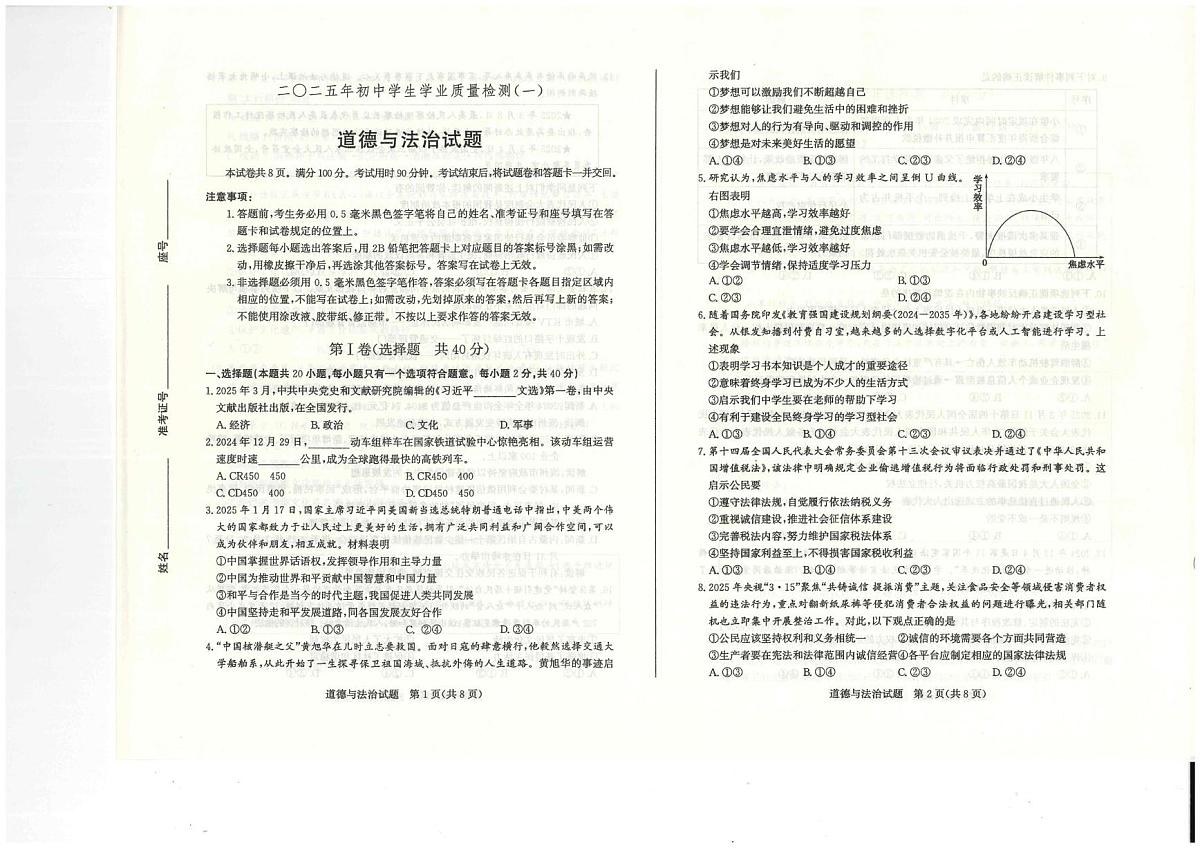 二〇二五年初中学生学业质量检测(一)
道德与法治试题
本试卷共8页。满分100分。考试用时90分钟。考试结束后,将试题卷和答题卡一并交回。
注意事项:
1.答题前,考生务必用0.5毫米黑色签字笔将自己的姓名、准考证号和座号填写在答
题卡和试卷规定的位置上。
2.选择题每小题选出答案后,用2B铅笔把答题卡上对应题目的答案标号涂黑;如需改
动,用橡皮擦干净后,再选涂其他答案标号。答案写在试卷上无效。
3.非选择题必须用0.5毫米黑色签字笔作答,答案必须写在答题卡各题目指定区域内
相应的位置,不能写在试卷上;如需改动,先划掉原来的答案,然后再写上新的答案;
不能使用涂改液、胶带纸、修正带。不按以上要求作答的答案无效。
第Ⅰ卷(选择题 共40分)
一、选择题(本题共20小题,每小题只有一个选项符合题意。每小题2分,共40分)
1.2025年3月,中共中央党史和文献研究院编辑的《习近平________文选》第一卷,由中央
文献出版社出版,在全国发行。
A.经济 B.政治 C.文化 D.军事
2.2024年12月29日,________动车组样车在国家铁道试验中心惊艳亮相。该动车组运营
速度时速________公里,成为全球跑得最快的高铁列车。
A.CR450 450 B.CR450 400
C.CD450 400 D.CD450 450
3.2025年1月17日,国家主席习近平同美国新当选总统特朗普通电话中指出,中美两个伟
大的国家都致力于让人民过上更美好的生活,拥有广泛共同利益和广阔合作空间,可以
成为伙伴和朋友,相互成就。材料表明
①中国掌握世界话语权,发挥领导作用和主导力量
②中国为推动世界和平贡献中国智慧和中国力量
③和平与合作是当今的时代主题,我国促进人类共同发展
④中国坚持走和平发展道路,同各国发展友好合作
A.①② B.①③ C.②④ D.③④
4.“中国核潜艇之父”黄旭华在儿时立志要救国。面对日寇的肆意横行,他毅然选择交通大
学船舶系,从此开始了一生探寻保卫祖国海域、抵抗外侮的人生道路。黄旭华的事迹启
道德与法治试题 第1页(共8页)
座号
准考证号
姓名
示我们
①梦想可以激励我们不断超越自己
②梦想能够让我们避免生活中的困难和挫折
③梦想对人的行为有导向、驱动和调控的作用
④梦想是对未来美好生活的愿望
A.①④ B.①③ C.②③ D.②④
5.研究认为,焦虑水平与人的学习效率之间呈倒U曲线。
右图表明
①焦虑水平越高,学习效率越好
②要学会合理宣泄情绪,避免过度焦虑
③焦虑水平越低,学习效率越好
④学会调节情绪,保持适度学习压力
A.①② B.①③
C.②③ D.②④
学习效率
0
焦虑水平
6.随着国务院印发《教育强国建设规划纲要(2024—2035年)》,各地纷纷开启建设学习型社
会。从银发如播到付费自习室,越来越多的人选择数字化平台或人工智能进行学习。上
述现象
①表明学习书本知识是个人成才的重要途径
②意味着终身学习已成为不少人的生活方式
③启示我们中学生要在老师的帮助下学习
④有利于建设全民终身学习的学习型社会
A.①③ B.①④ C.②③ D.②④
7.第十四届全国人民代表大会常务委员会第十三次会议审议表决并通过了《中华人民共和
国增值税法》,该法律中明确规定企业偷逃增值税行为将面临行政处罚和刑事处罚。这
启示公民要
①遵守法律法规,自觉履行依法纳税义务
②重视诚信建设,推进社会征信体系建设
③完善税法内容,努力维护国家税法体系
④坚持国家利益至上,不得损害国家税收利益
A.①③ B.①④ C.②③ D.②④
8.2025年央视“3·15”聚焦“共铸诚信 提振消费”主题,关注食品安全等领域侵害消费者权
益的违法行为,重点对翻新纸尿裤等侵犯消费者合法权益的问题进行曝光,相关部门随
机也立即集中开展整治工作。对此,以下观点正确的是
①公民应该坚持权利和义务相统一 ②诚信的环境需要各个方面共同营造
③生产者要在宪法和法律范围内诚信经营④各平台应制定相应的国家法律法规
A.①③ B.①④ C.②③ D.②④
道德与法治试题 第2页(共8页)